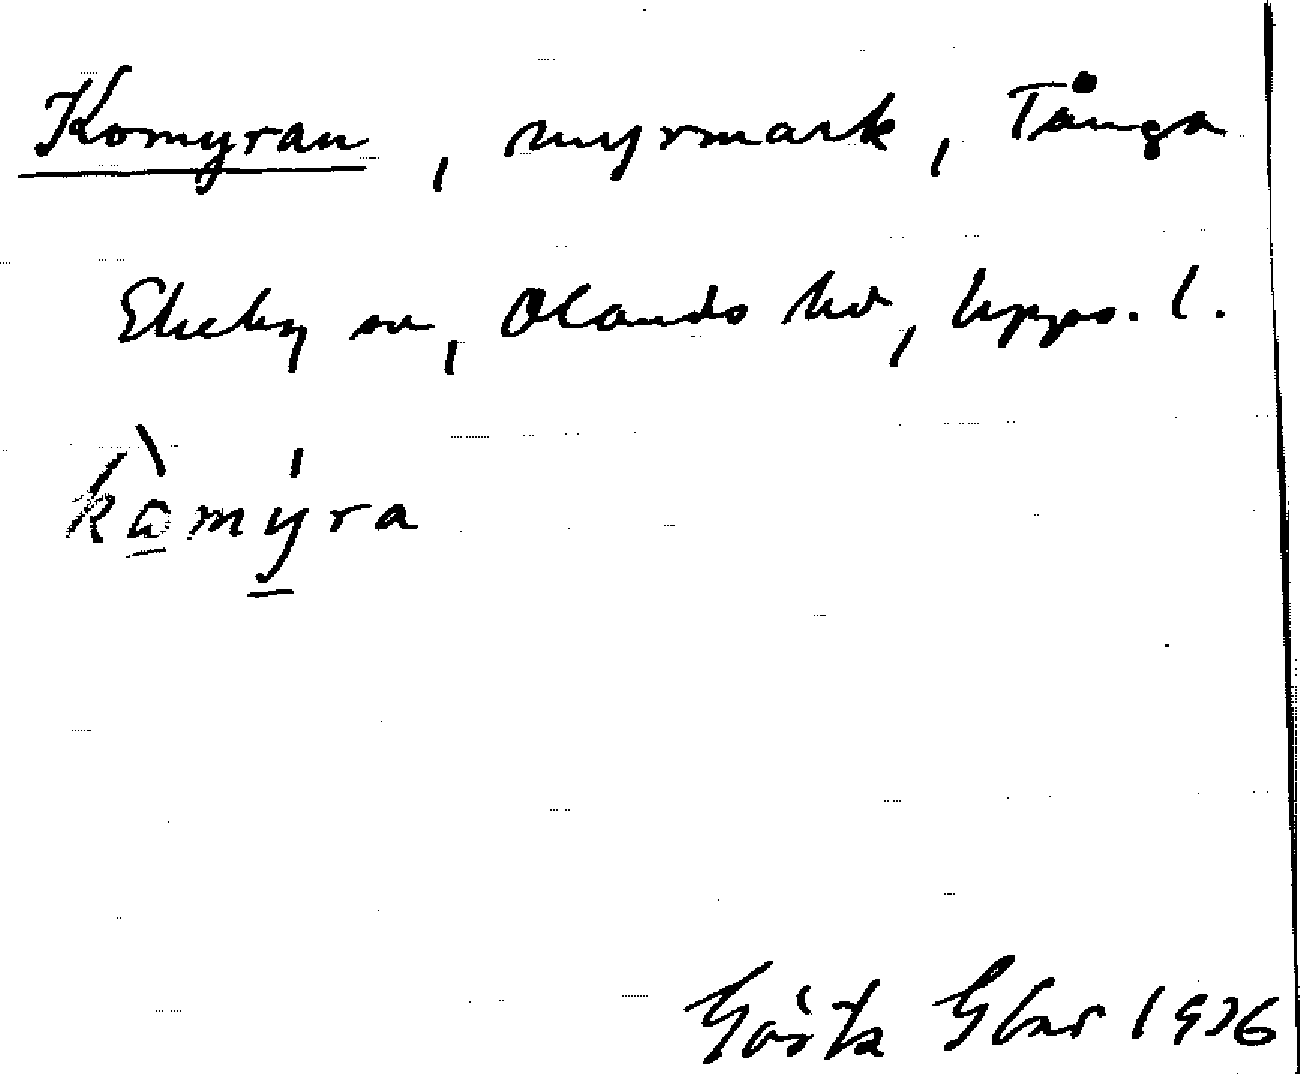 Komyran, myrmark, Tånga
Ekeby sn, Olands hd, Upps. l.
kòmýra
Gösta